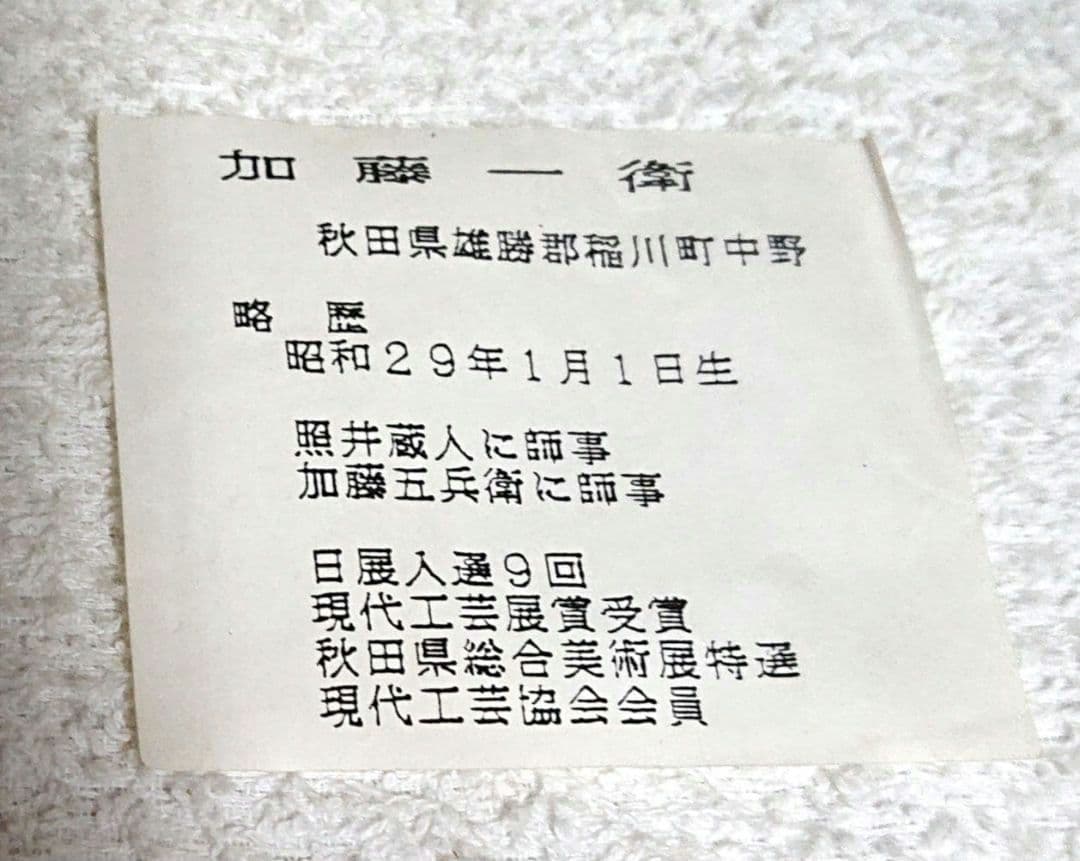 加藤一衛
秋田県雄勝郡稲川町中野
略歴
昭和29年1月1日生
照井蔵人に師事
加藤五兵衛に師事
日展入選9回
現代工芸展賞受賞
秋田県総合美術展特選
現代工芸協会会員